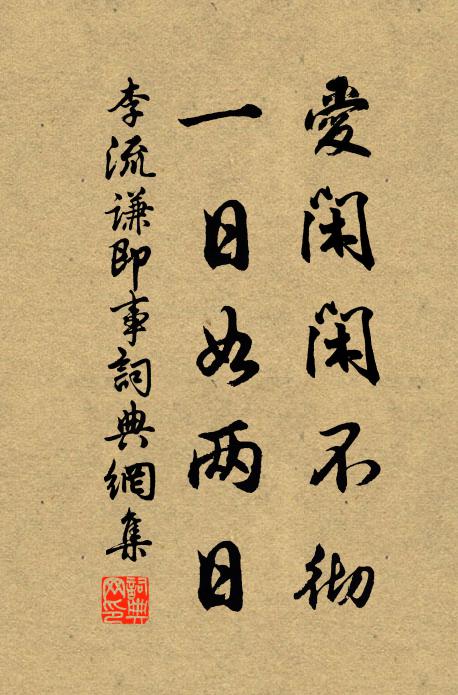 愛閑閑不彻
一日如两日
李流謙即事詞典網集
詞典
网印